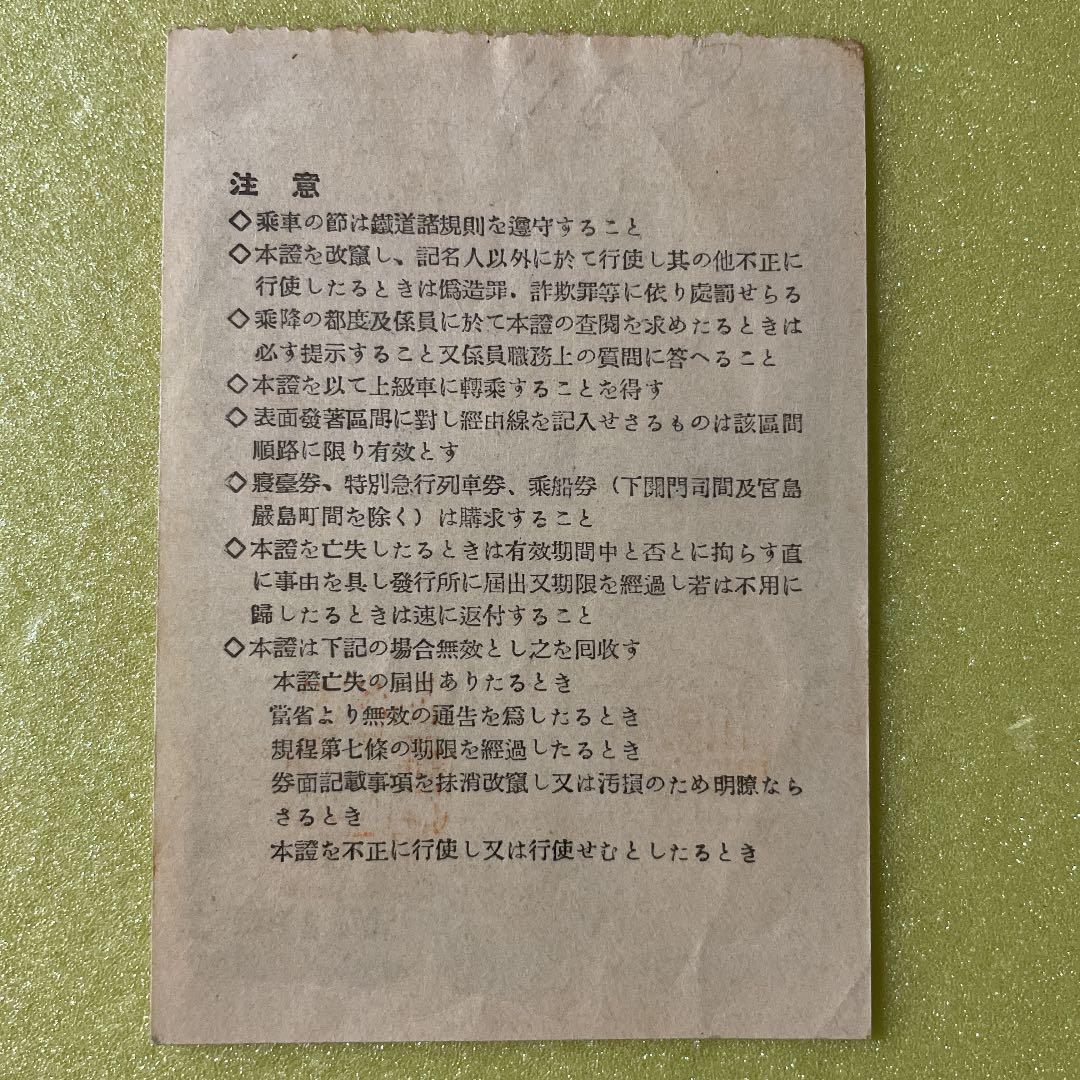 注意
◇乘車の節は鐵道諸規則を遵守すること
◇本證を改竄し、記名人以外に於て行使し其の他不正に
行使したるときは僞造罪．詐欺罪等に依り處罰せらる
◇乘降の都度及係員に於て本證の查閱を求めたるときは
必す提示すること又係員職務上の質問に答へること
◇本證を以て上級車に轉乘することを得す
◇表面發著區間に對し經由線を記入せさるものは該區間
順路に限り有效とす
◇寢臺券、特別急行列車券、乘船券（下關門司間及宮島
嚴島町間を除く）は購求すること
◇本證を亡失したるときは有效期間中と否とに拘らす直
に事由を具し發行所に屆出又期限を經過し若は不用に
歸したるときは速に返付すること
◇本證は下記の場合無效とし之を囘收す
本證亡失の屆出ありたるとき
當省より無效の通告を爲したるとき
規程第七條の期限を經過したるとき
券面記載事項を抹消改竄し又は汚損のため明瞭なら
さるとき
本證を不正に行使し又は行使せむとしたるとき